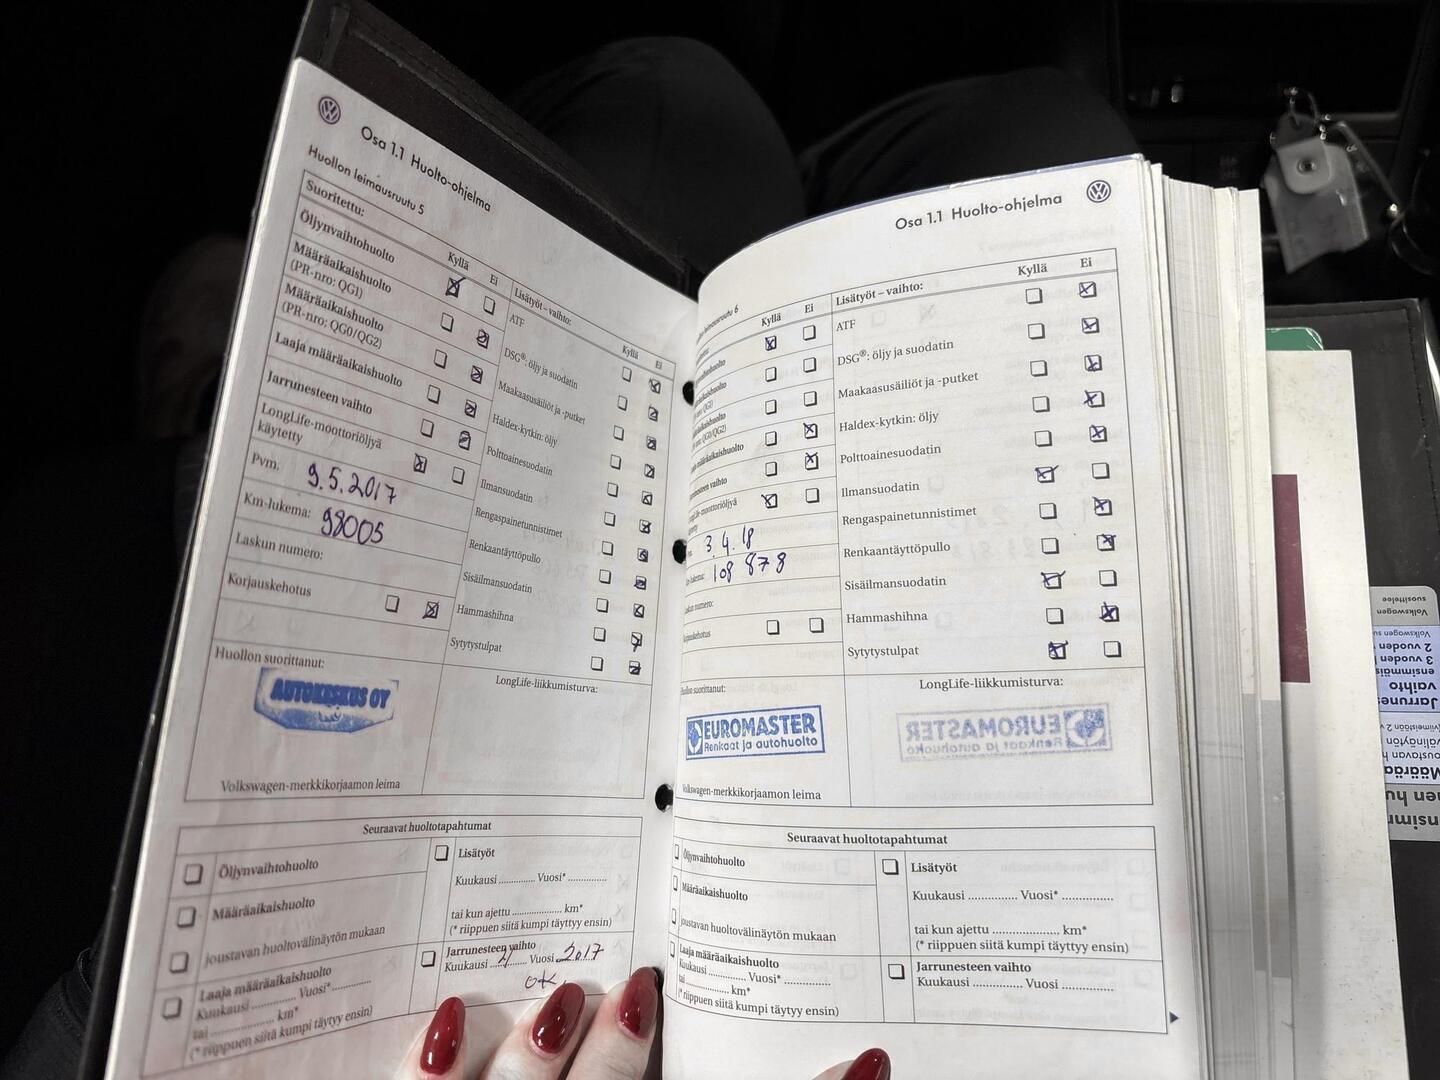 Osa 1.1 Huolto-ohjelma
Huollon leimausruutu 5
Suoritettu:
Kyllä Ei
Öljynvaihtohuolto
Määräaikaishuolto
(PR-nro: QG1)
Määräaikaishuolto
(PR-nro: QG0/QG2)
Laaja määräaikaishuolto
Jarrunesteen vaihto
LongLife-moottoriöljyä
käytetty
Pvm. 9.5.2017
Km-lukema: 98005
Laskun numero:
Korjauskehotus
Lisätyöt – vaihto:
Kyllä Ei
ATF
DSG®: öljy ja suodatin
Maakaasusäiliöt ja -putket
Haldex-kytkin: öljy
Polttoainesuodatin
Ilmansuodatin
Rengaspainetunnistimet
Renkaantäyttöpullo
Sisäilmansuodatin
Hammashihna
Sytytystulpat
Huollon suorittanut:
AUTOKESKUS OY
Volkswagen-merkkikorjaamon leima
LongLife-liikkumisturva:
Seuraavat huoltotapahtumat
Öljynvaihtohuolto
Määräaikaishuolto
joustavan huoltovälinäytön mukaan
Laaja määräaikaishuolto
Kuukausi ............. Vuosi*............
tai .................... km*
(* riippuen siitä kumpi täytyy ensin)
Lisätyöt
Kuukausi ............. Vuosi* .............
tai kun ajettu .................. km*
(* riippuen siitä kumpi täytyy ensin)
Jarrunesteen vaihto
Kuukausi Vuosi 2017
ok
Osa 1.1 Huolto-ohjelma
leimausruutu 6
Kyllä Ei
Lisätyöt – vaihto:
Kyllä Ei
ATF
DSG®: öljy ja suodatin
Maakaasusäiliöt ja -putket
Haldex-kytkin: öljy
Polttoainesuodatin
Ilmansuodatin
Rengaspainetunnistimet
Renkaantäyttöpullo
Sisäilmansuodatin
Hammashihna
Sytytystulpat
3.4.18
108 878
Huollon suorittanut:
EUROMASTER
Renkaat ja autohuolto
Volkswagen-merkkikorjaamon leima
LongLife-liikkumisturva:
EUROMASTER
Renkaat ja autohuolto
Seuraavat huoltotapahtumat
Öljynvaihtohuolto
Määräaikaishuolto
joustavan huoltovälinäytön mukaan
Laaja määräaikaishuolto
Kuukausi ............. Vuosi* .............
tai .................. km*
(* riippuen siitä kumpi täytyy ensin)
Lisätyöt
Kuukausi ............. Vuosi* .............
tai kun ajettu .................. km*
(* riippuen siitä kumpi täytyy ensin)
Jarrunesteen vaihto
Kuukausi ............. Vuosi .............
Volkswagen
suosittelee